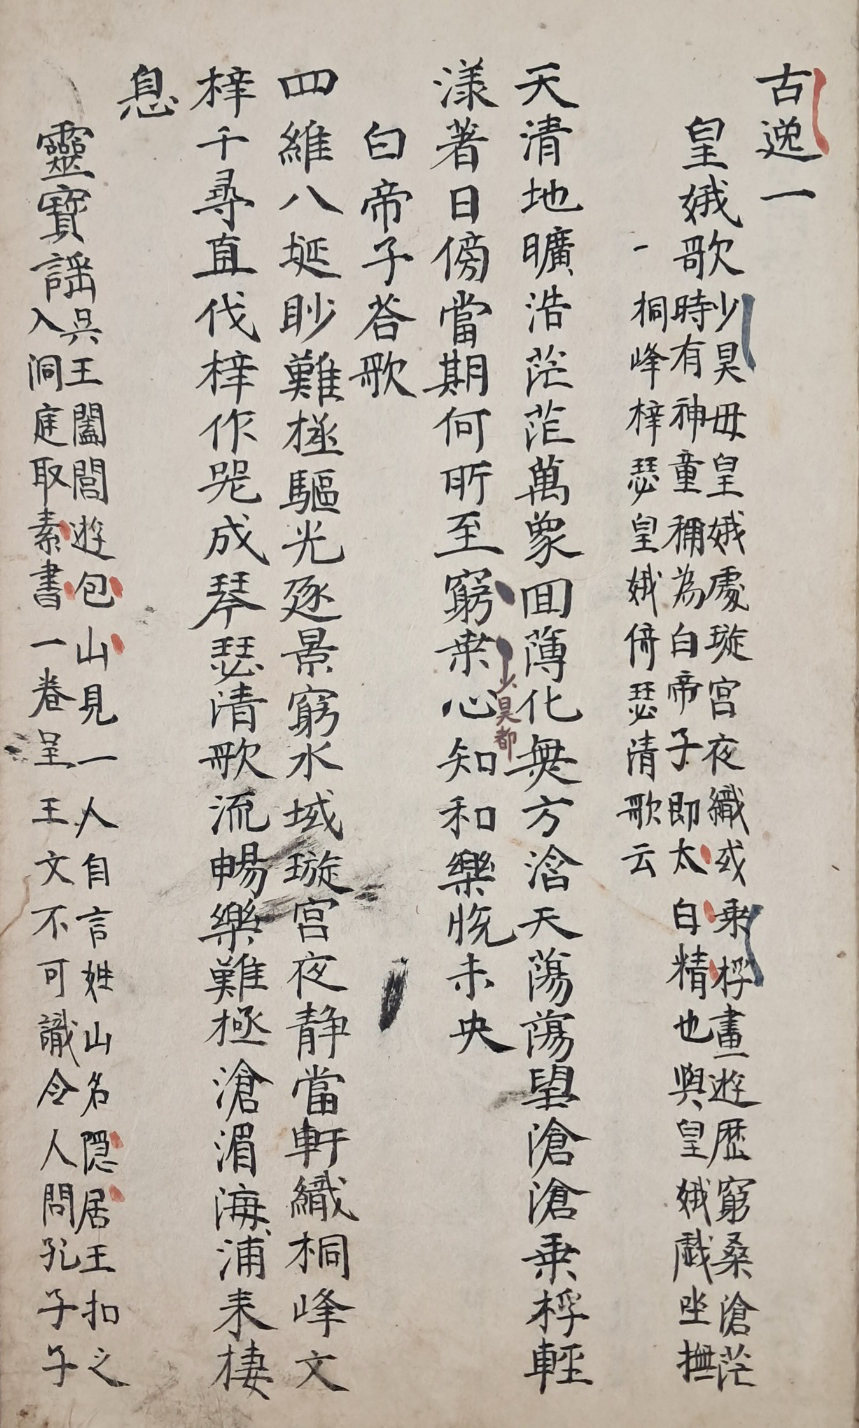 古逸一
皇娥歌
少昊母皇娥處璇宮夜織或乘桴晝遊歴窮桑滄茫
時有神童稱為白帝子即太白精也與皇娥戯坐撫
一桐峰梓瑟皇娥倚瑟清歌云
天清地曠浩茫茫萬象囬薄化無方浛天蕩蕩望滄滄乗桴輕
漾著日傍當期何所至窮桒心知和樂恱未央
少昊都
白帝子荅歌
四維八埏眇難極驅光逐景窮水域璇宮夜静當軒織桐峰文
梓千尋直伐梓作器成琴瑟清歌流暢樂難極滄湄海浦来棲
息
靈寶謡
吳王闔閭遊包山見一人自言姓山名隠居王扣之
入洞庭取素書一卷呈王文不可識令人問孔子子